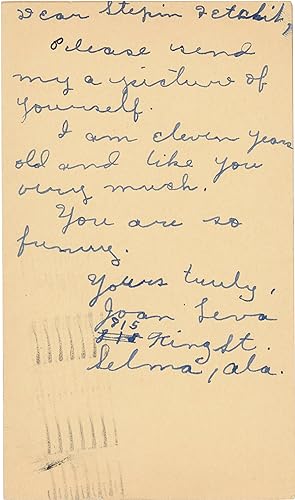 Dear Stepin Fetchit,
Please send
my a picture of
yourself.
I am eleven years
old and like you
very much.
You are so
funny.
Yours truly,
Joan Leva
915
King St.
Selma, Ala.